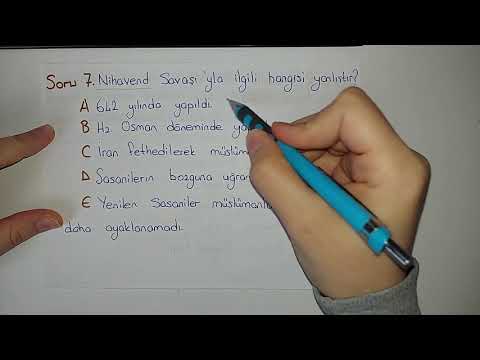 Soru 7. Nihavend Savaşı'yla ilgili hangisi yanlıştır?
A 642 yılında yapıldı.
B Hz Osman döneminde
C İran fethedilerek
D Sasanilerin bozguna
E Yenilen Sasaniler
daha ayaklanamadı.